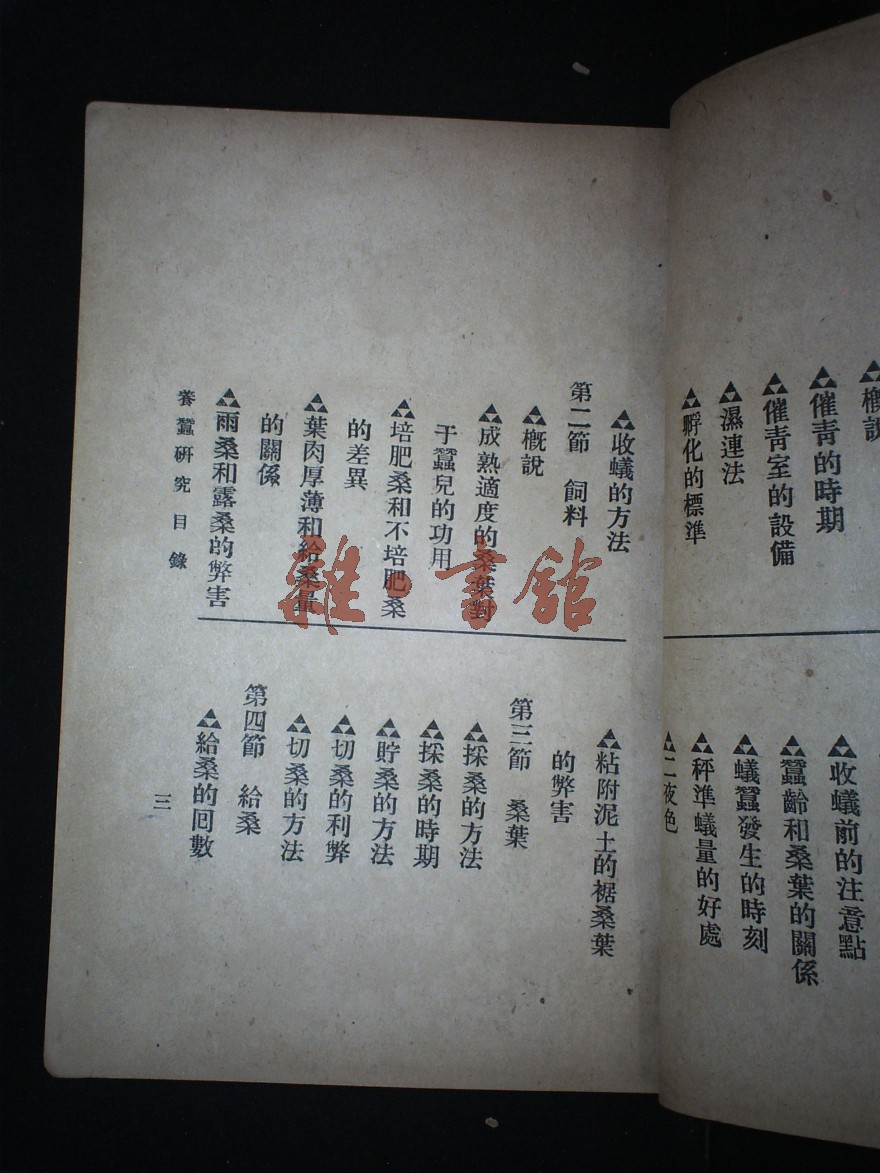 ▲概說
▲催青的時期
▲催青室的設備
▲濕連法
▲孵化的標準
▲收蟻前的注意點
▲蠶齡和桑葉的關係
▲蟻蠶發生的時刻
▲秤準蟻量的好處
▲收蟻的方法
第二節 飼料
▲概說
▲成熟適度的桑葉對
于蠶兒的功用
▲培肥桑和不培肥桑
的差異
▲葉肉厚薄和給桑量
的關係
▲雨桑和露桑的弊害
▲粘附泥土的裾桑葉
的弊害
第三節 桑葉
▲採桑的方法
▲採桑的時期
▲貯桑的方法
▲切桑的利弊
▲切桑的方法
第四節 給桑
▲給桑的回數
養蠶研究目錄
三
雜·書館